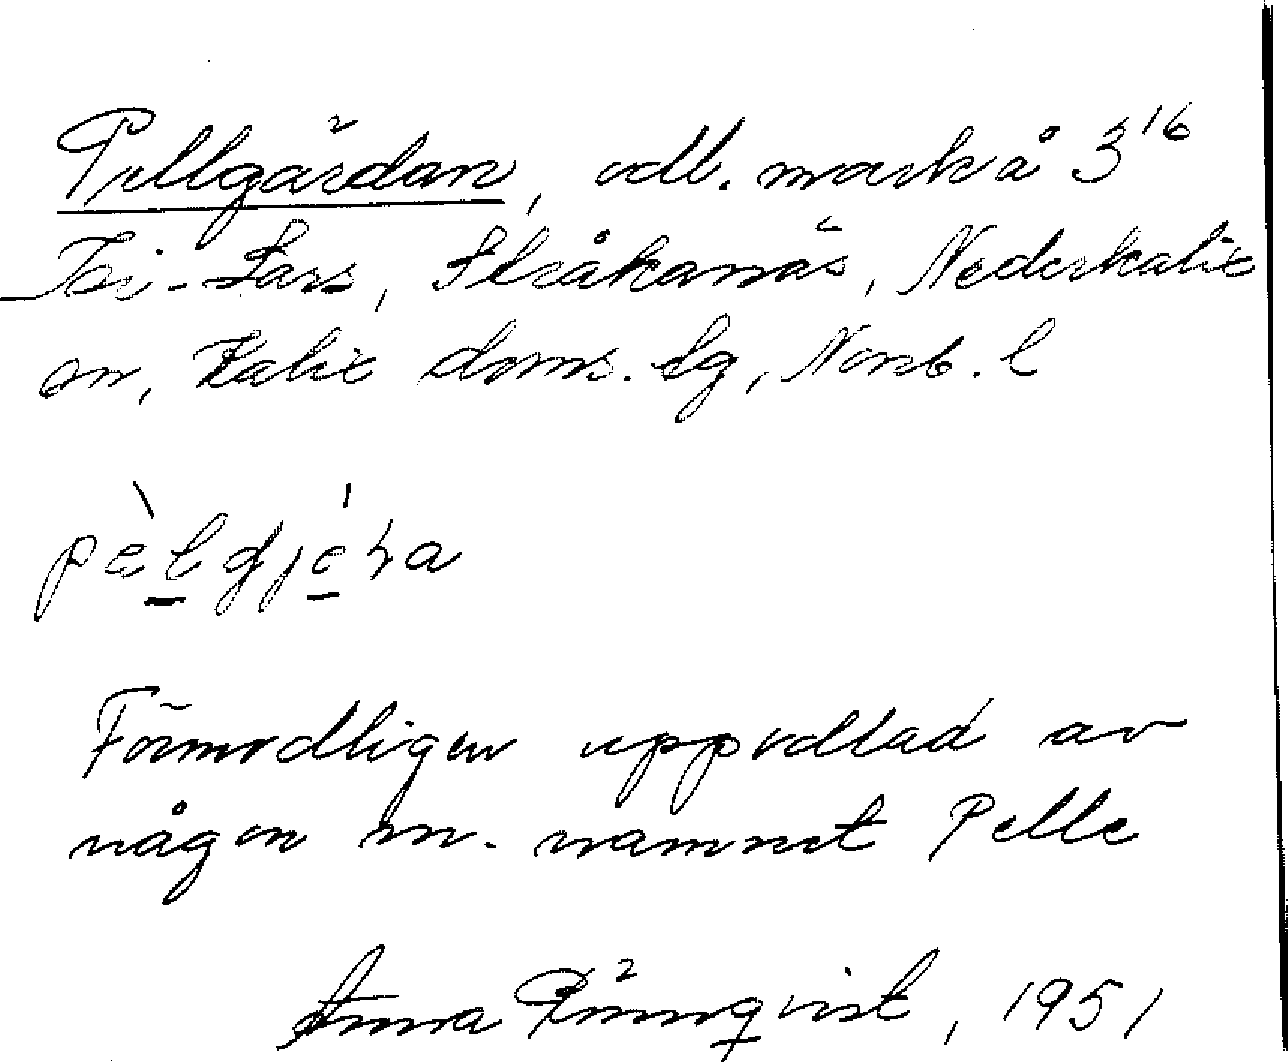 Pellgärdan, odl. mark å 3¹⁶
Lars, Stråkanäs, Nederkalix
sn, Kalix doms. sg, Norrb. l
Förmodligen uppodlad av
någon m. namnet Pelle
Anna Rönnqvist, 1951